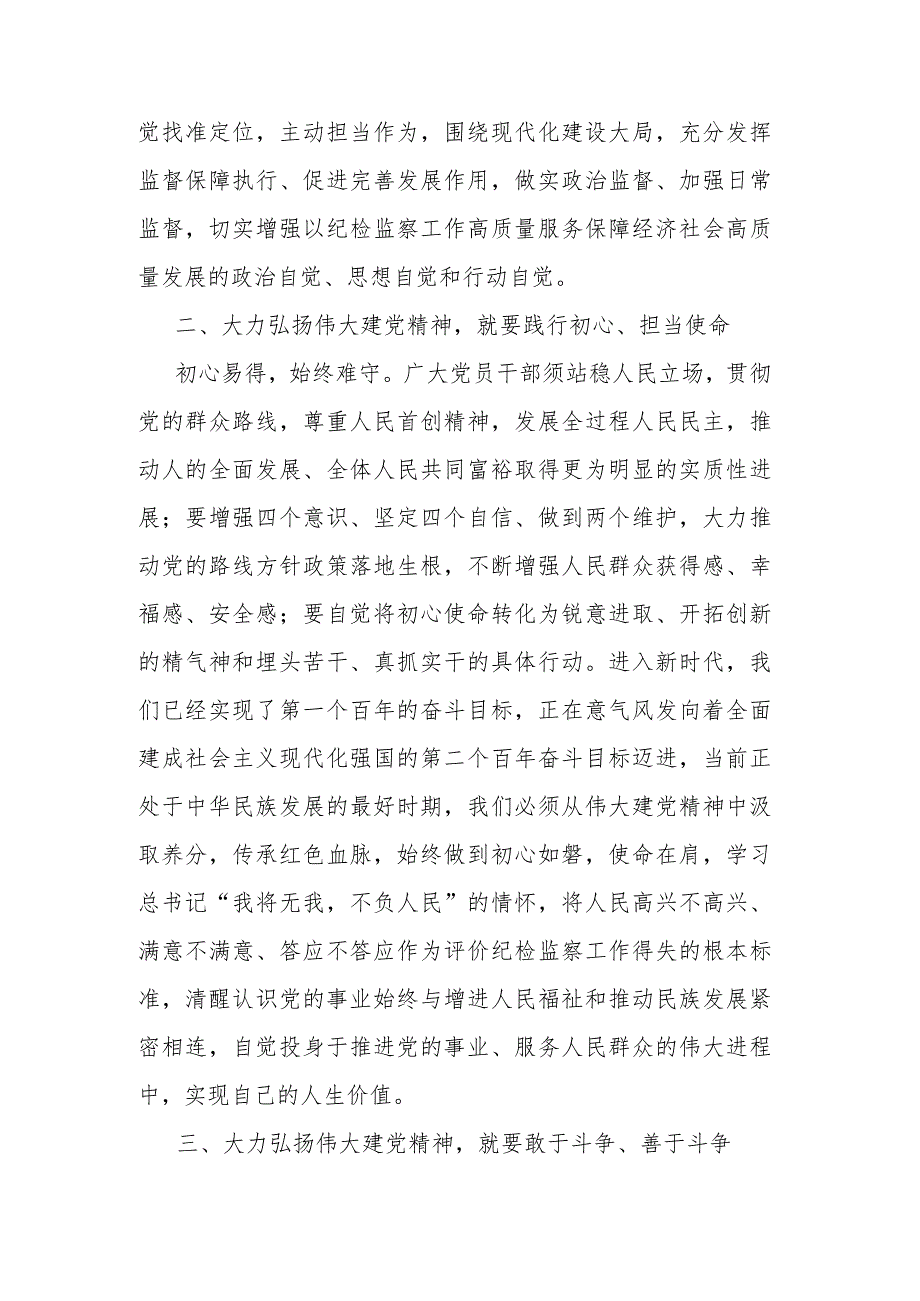 觉找准定位，主动担当作为，围绕现代化建设大局，充分发挥
监督保障执行、促进完善发展作用，做实政治监督、加强日常
监督，切实增强以纪检监察工作高质量服务保障经济社会高质
量发展的政治自觉、思想自觉和行动自觉。
二、大力弘扬伟大建党精神，就要践行初心、担当使命
初心易得，始终难守。广大党员干部须站稳人民立场，贯彻
党的群众路线，尊重人民首创精神，发展全过程人民民主，推
动人的全面发展、全体人民共同富裕取得更为明显的实质性进
展；要增强四个意识、坚定四个自信、做到两个维护，大力推
动党的路线方针政策落地生根，不断增强人民群众获得感、幸
福感、安全感；要自觉将初心使命转化为锐意进取、开拓创新
的精气神和埋头苦干、真抓实干的具体行动。进入新时代，我
们已经实现了第一个百年的奋斗目标，正在意气风发向着全面
建成社会主义现代化强国的第二个百年奋斗目标迈进，当前正
处于中华民族发展的最好时期，我们必须从伟大建党精神中汲
取养分，传承红色血脉，始终做到初心如磐，使命在肩，学习
总书记“我将无我，不负人民”的情怀，将人民高兴不高兴、
满意不满意、答应不答应作为评价纪检监察工作得失的根本标
准，清醒认识党的事业始终与增进人民福祉和推动民族发展紧
密相连，自觉投身于推进党的事业、服务人民群众的伟大进程
中，实现自己的人生价值。
三、大力弘扬伟大建党精神，就要敢于斗争、善于斗争